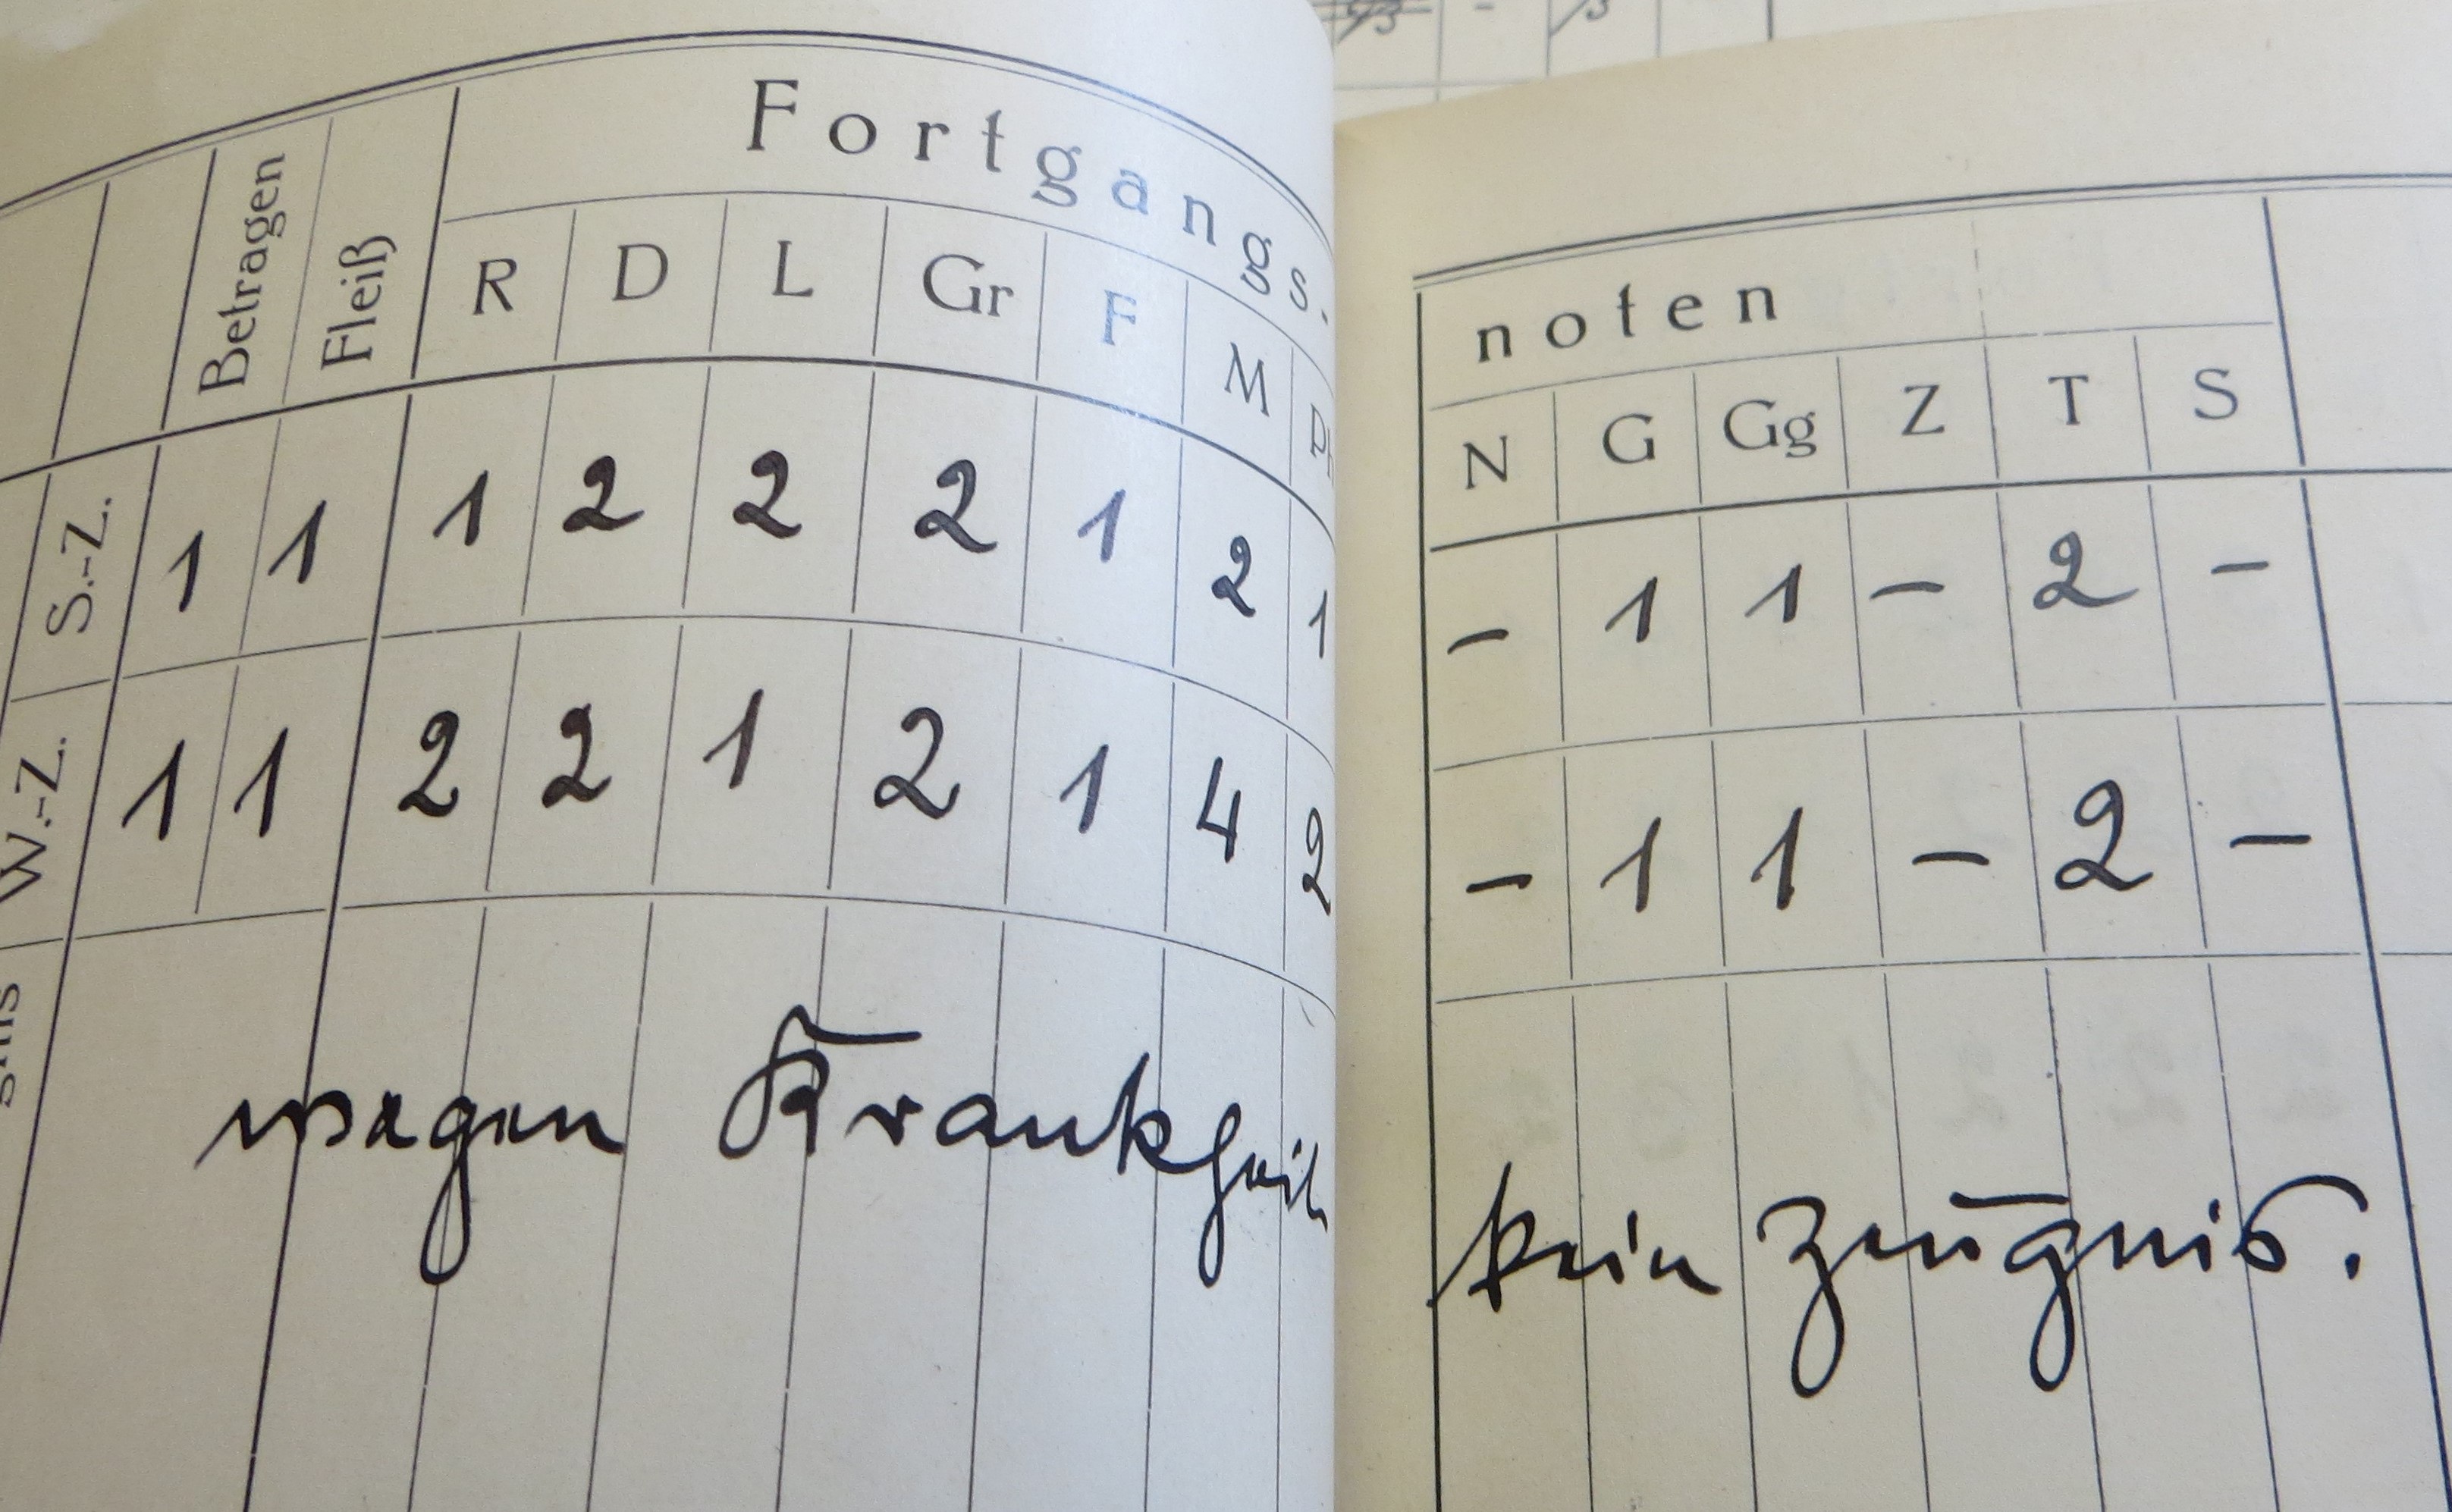 Fortgangs-
Betragen Fleiß R D L Gr F M Ph
S.-Z. 1 1 1 2 2 2 1 2 1
W.-Z. 1 1 2 2 1 2 1 4 2
wegen Krankheit
noten
N G Gg Z T S
- 1 1 - 2 -
- 1 1 - 2 -
kein Zeugnis.